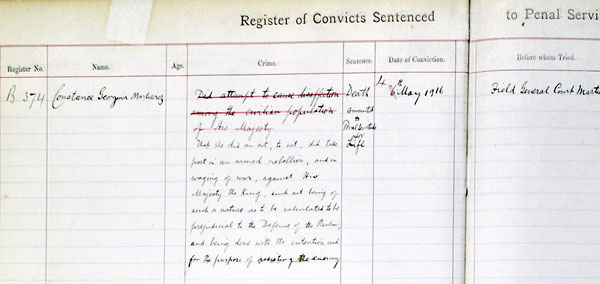 Register of Convicts Sentenced to Penal Servi
Register No. Name. Age. Crime. Sentence. Date of Conviction. Before whom Tried.
B 374 Constance Georgina Markievicz
Did attempt to cause disaffection
among the civilian population
of His Majesty
That she did an act, to wit, did take
part in an armed rebellion, and in
waging of war, against His
Majesty the King, such act being of
such a nature as to be calculated to be
prejudicial to the Defence of the Realm,
and being done with the intention and
for the purpose of assisting the enemy
Death
commuted
to
Penal Servitude
for
Life
4th May 1916
Field General Court Marti